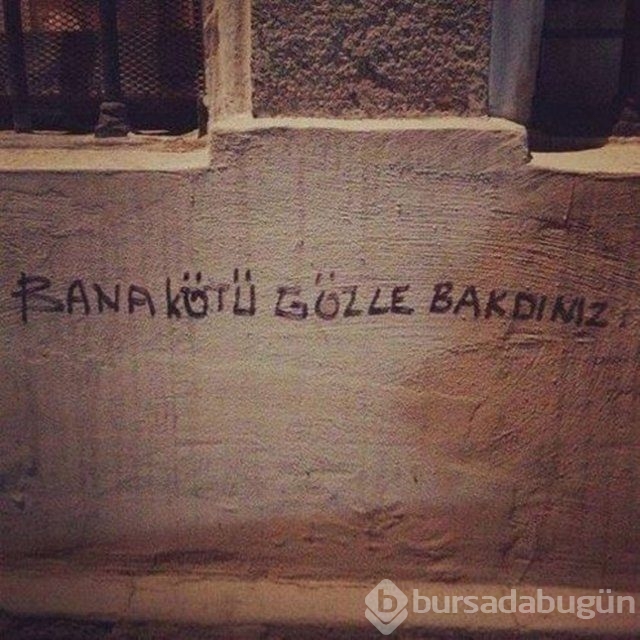 BANA KÖTÜ GÖZLE BAKDINIZ
bursadabugün